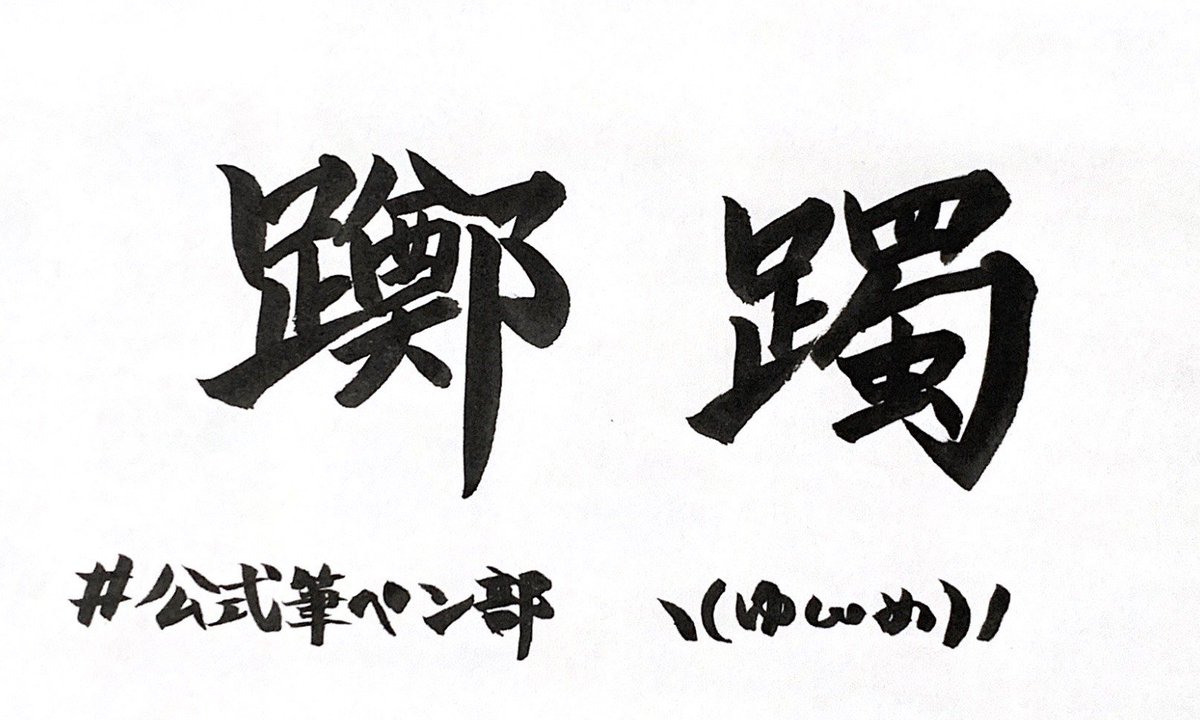 躑躅
#公式筆ペン部 \(ゆいめ)/